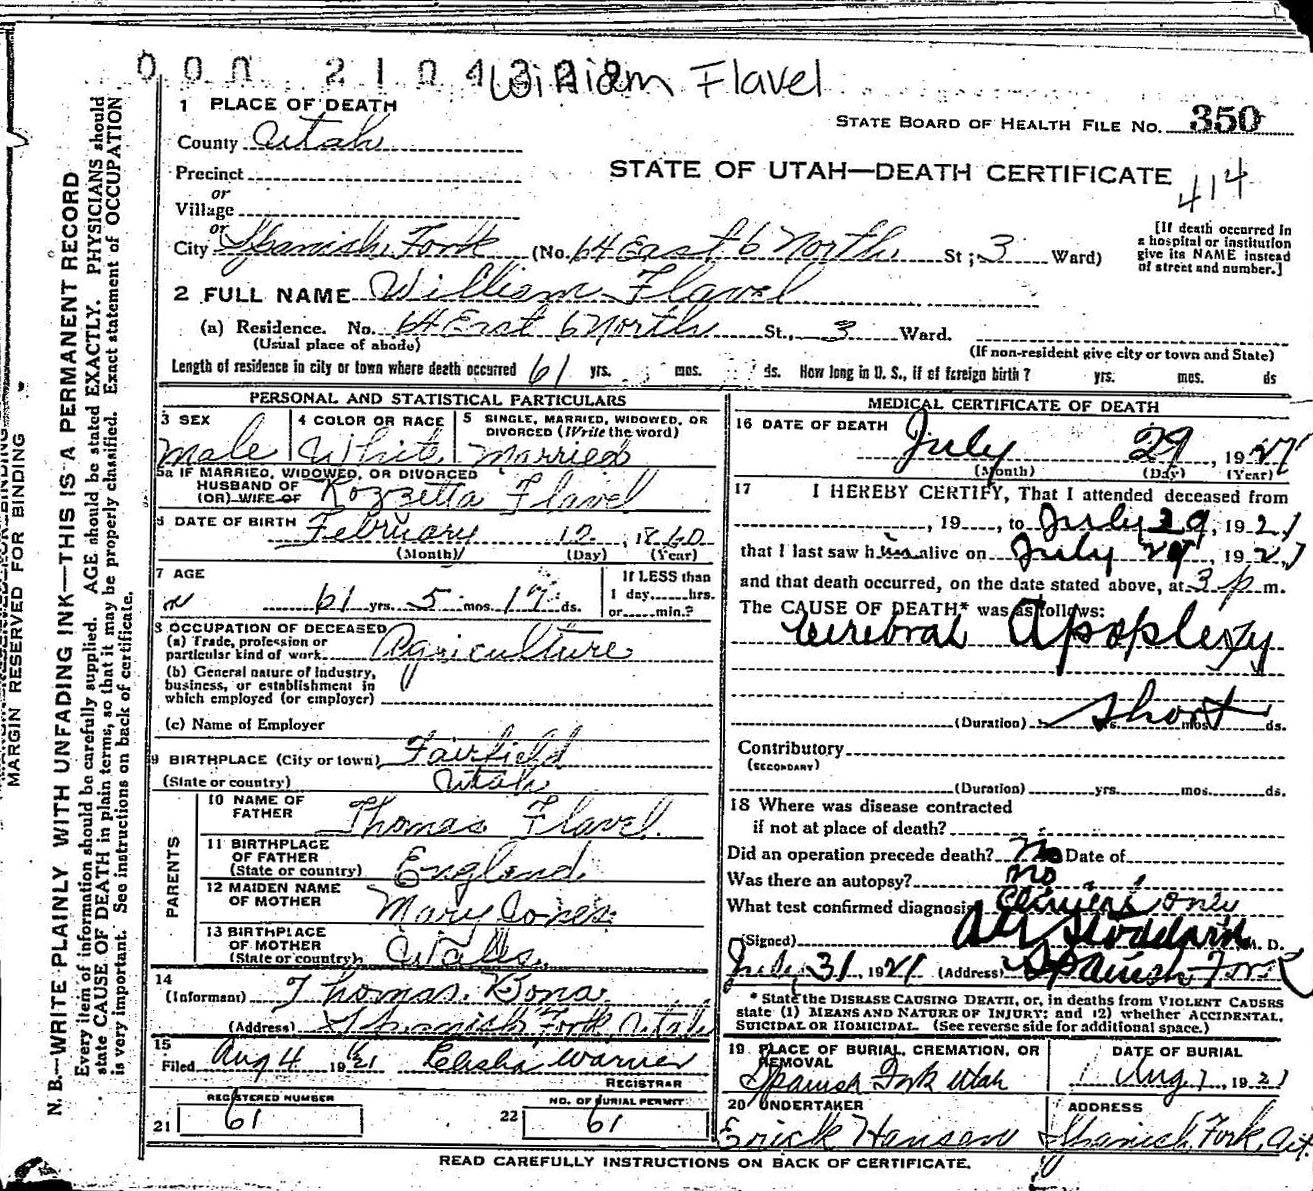 William Flavel
1 PLACE OF DEATH
STATE BOARD OF HEALTH FILE No. 350
County Utah
STATE OF UTAH—DEATH CERTIFICATE
414
Precinct
or
Village
or
City Spanish Fork (No. 64 East 6 North St; 3 Ward)
[If death occurred in
a hospital or institution
give its NAME instead
of street and number.]
2 FULL NAME William Flavel
(a) Residence. No. 64 East 6 North St., 3 Ward.
(Usual place of abode)
(If non-resident give city or town and State)
Length of residence in city or town where death occurred 61 yrs. mos. ds. How long in U. S., if of foreign birth? yrs. mos. ds
PERSONAL AND STATISTICAL PARTICULARS
3 SEX
Male
4 COLOR OR RACE
White
5 SINGLE, MARRIED, WIDOWED, OR
DIVORCED (Write the word)
Married
5a IF MARRIED, WIDOWED, OR DIVORCED
HUSBAND OF
(OR) WIFE OF
Rozzetta Flavel
6 DATE OF BIRTH February 12, 1860
(Month) (Day) (Year)
7 AGE
61 yrs. 5 mos. 17 ds.
If LESS than
1 day,......hrs.
or......min.?
8 OCCUPATION OF DECEASED
(a) Trade, profession or
particular kind of work
Agriculture
(b) General nature of industry,
business, or establishment in
which employed (or employer)
(c) Name of Employer
9 BIRTHPLACE (City or town) Fairfield
(State or country) Utah
PARENTS
10 NAME OF
FATHER
Thomas Flavel
11 BIRTHPLACE
OF FATHER
(State or country) England
12 MAIDEN NAME
OF MOTHER
Mary Jones
13 BIRTHPLACE
OF MOTHER
(State or country) Walls
14
(Informant) Thomas Bona
(Address) Spanish Fork Utah
15
Filed Aug 4 1921 Elisha Warner
REGISTRAR
REGISTERED NUMBER
21 61
NO. OF BURIAL PERMIT
22 61
MEDICAL CERTIFICATE OF DEATH
16 DATE OF DEATH
July 29, 1921
(Month) (Day) (Year)
17 I HEREBY CERTIFY, That I attended deceased from
, 19 , to July 29, 1921
that I last saw him alive on July 29, 1921
and that death occurred, on the date stated above, at 3 p m.
The CAUSE OF DEATH* was as follows:
Cerebral Apoplexy
(Duration) short mos. ds.
Contributory
(SECONDARY)
(Duration) yrs. mos. ds.
18 Where was disease contracted
if not at place of death?
Did an operation precede death? No Date of
Was there an autopsy? No
What test confirmed diagnosis Clinical only
(Signed) M. D.
July 31, 1921 (Address) Spanish Fork
* State the DISEASE CAUSING DEATH, or, in deaths from VIOLENT CAUSES
state (1) MEANS AND NATURE OF INJURY; and (2) whether ACCIDENTAL,
SUICIDAL OR HOMICIDAL. (See reverse side for additional space.)
19 PLACE OF BURIAL, CREMATION, OR
REMOVAL
Spanish Fork Utah
DATE OF BURIAL
Aug 1, 1921
20 UNDERTAKER
Erick Hansen
ADDRESS
Spanish Fork, Ut.
READ CAREFULLY INSTRUCTIONS ON BACK OF CERTIFICATE.
MARGIN RESERVED FOR BINDING
N. B.—WRITE PLAINLY WITH UNFADING INK—THIS IS A PERMANENT RECORD
Every item of information should be carefully supplied. AGE should be stated EXACTLY. PHYSICIANS should
state CAUSE OF DEATH in plain terms, so that it may be properly classified. Exact statement of OCCUPATION
is very important. See instructions on back of certificate.